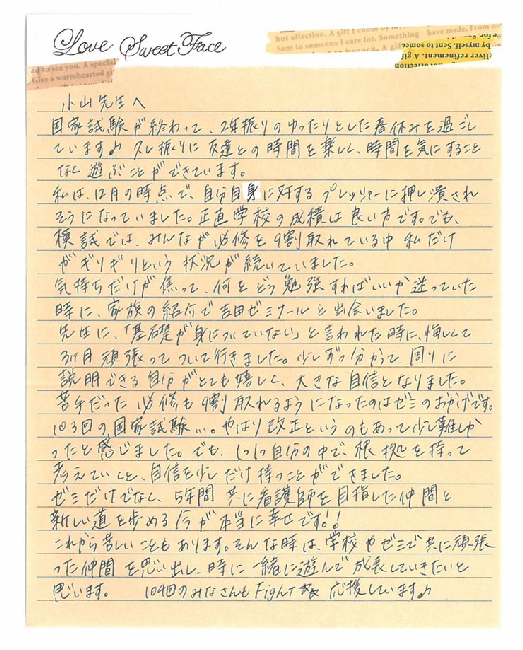 Love Sweet Face
小山先生へ
国家試験が終わって、2年振りのゆったりとした春休みを過ごし
ています♪ 久し振りに友達との時間を楽しく、時間を気にすること
なく遊ぶことができています。
私は、12月の時点で、自分自身に対するプレッシャーに押し潰され
そうになっていました。正直学校の成績は良い方です。でも、
模試では、みんなが必修を9割取れている中 私だけ
がギリギリという状況が続いていました。
気持ちだけが焦って、何をどう勉強すればいいか迷っていた
時に、家族の紹介で吉田ゼミナールと出会いました。
先生に、「基礎が身についていない」と言われた時に、悔しくて
3ヶ月頑張ってついて行きました。少しずつ分かって 周りに
説明できる自分がとても嬉しく、大きな自信となりました。
苦手だった必修も9割取れるようになったのはゼミのおかげです。
103回の国家試験…。やはり改正というのもあって少し難しか
ったと感じました。でも、1つ1つ自分の中で、根拠を持って
考えていくと、自信を少しだけ持つことができました。
ゼミだけでなく、5年間共に看護師を目指した仲間と
新しい道を歩める今が本当に幸せです!!
これから苦しいこともあります。そんな時は、学校やゼミで共に頑張
った仲間を思い出し、時に一緒に遊んで成長していきたいと
思います。 104回のみなさんもFight 応援しています♪